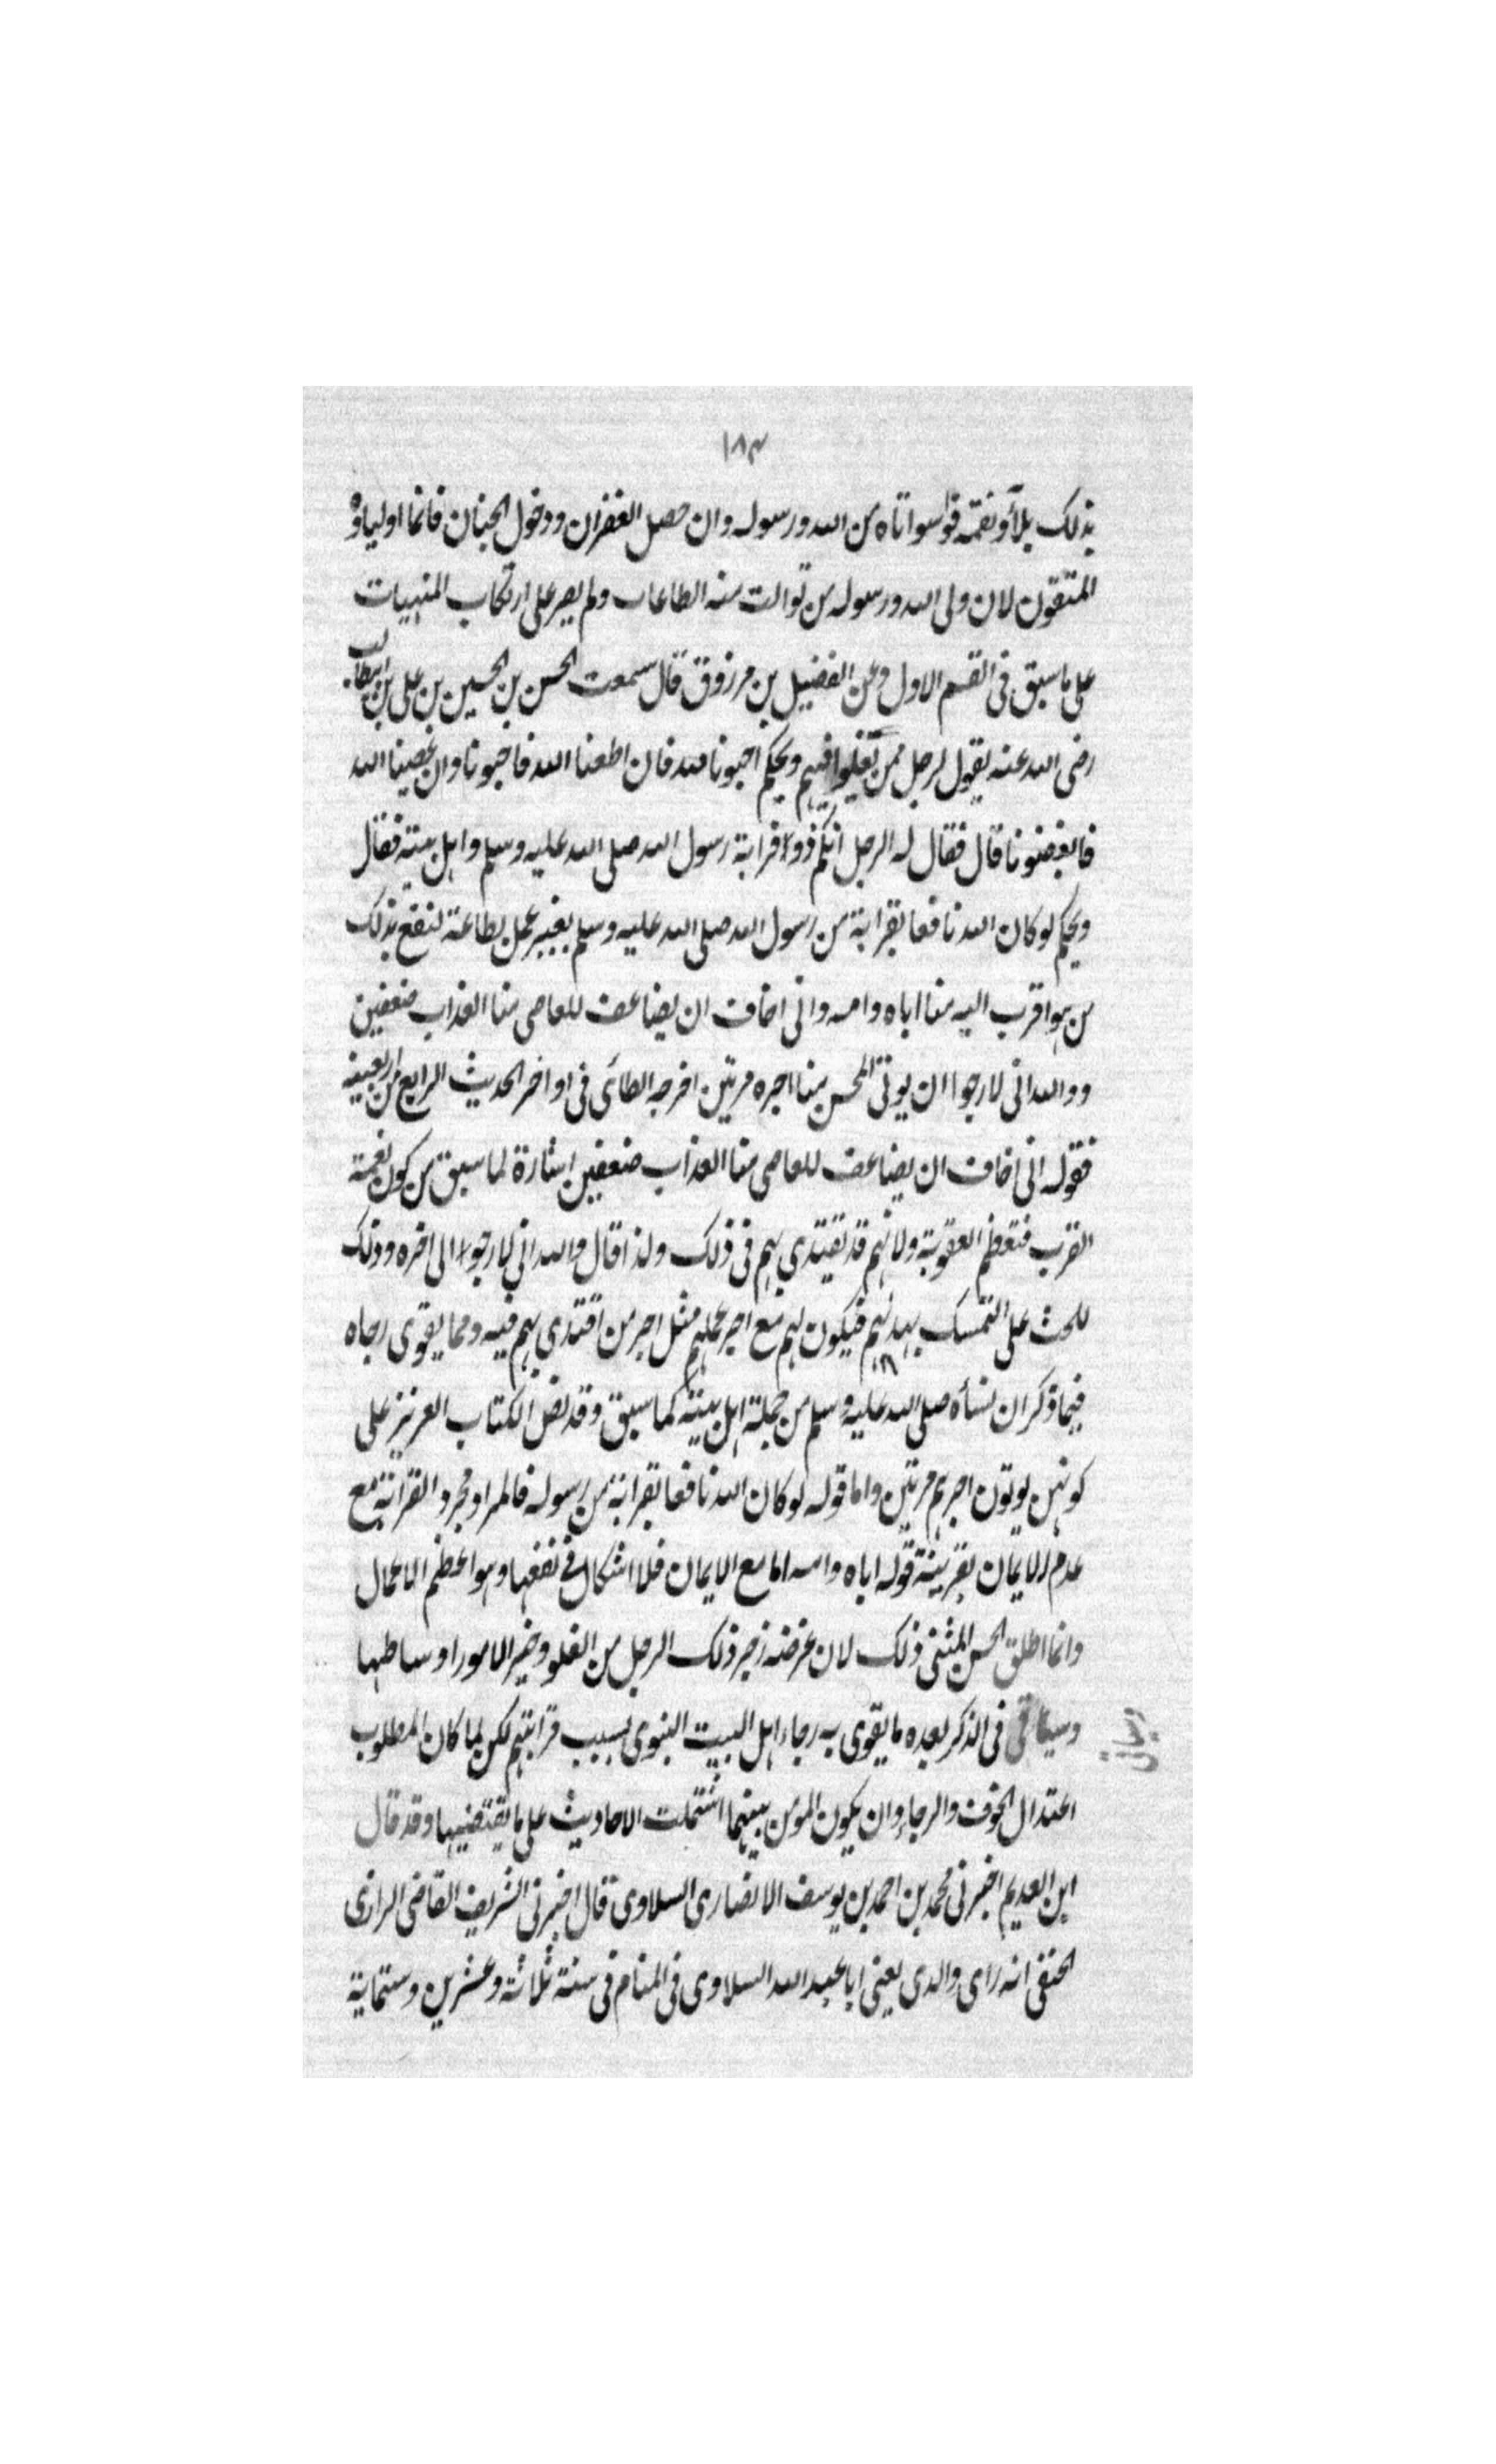 ١٨٣
بذلك بلاء ونقمة فواسواتاه من الله ورسوله وان حصل الغفران ودخول الجنان فانما اولياؤه
المتقون لان ولى الله ورسوله من توالت منه الطاعات ولم يصر على ارتكاب المنهيات
على ما سبق فى القسم الاول وعن الفضيل بن مرزوق قال سمعت الحسن بن الحسين بن على بن ابيطالب
رضى الله عنه يقول لرجل ممن يغلوا فيهم ويحكم احبونا لله فان اطعنا الله فاحبونا وان عصينا الله
فابغضونا قال فقال له الرجل انكم ذووا قرابة رسول الله صلى الله عليه وسلم واهل بيته فقال
ويحكم لو كان الله نافعا بقرابة من رسول الله صلى الله عليه وسلم بغير عمل بطاعته لنفع بذلك
من هو اقرب اليه منا اباه وامه وانى اخاف ان يضاعف للعاصى منا العذاب ضعفين
ووالله انى لارجوا ان يوتى المحسن منا اجره مرتين اخرجه الطائى فى اواخر الحديث الرابع من اربعينه
فقوله انى اخاف ان يضاعف للعاصى منا العذاب ضعفين اشارة لما سبق من كون نعمة
القرب فتعظم العقوبة ولانهم قد تقتدي بهم فى ذلك ولذا قال والله انى لارجوا الى اخره وذلك
للحث على التمسك بهديهم فيكون لهم مع اجر عملهم مثل اجر من اقتدي بهم فيه ومما يقوى رجاه
فيما ذكر ان نسأه صلى الله عليه وسلم من جملة اهل بيته كما سبق وقد نص الكتاب العزيز على
كونهن يوتون اجرهم مرتين واما قوله لو كان الله نافعا بقرابة من رسوله فالمراد مجرد القرابة مع
عدم الايمان بقرينة قوله اباه وامه اما مع الايمان فلا اشكال فى نفعها وهو اعظم الاعمال
وانما اطلق الحسن المثنى ذلك لان غرضه زجر ذلك الرجل من الغلو وخير الامور اوساطها
وسياتى فى الذكر بعده ما يقوى به رجاء اهل البيت النبوى بسبب قرابتهم لكن لما كان المطلوب
اعتدال الخوف والرجاء وان يكون المؤمن بينهما اشتملت الاحاديث على ما يقتضيها وقد قال
ابن العديم اخبرنى محمد بن احمد بن يوسف الانصارى السلاوى قال اخبرنى الشريف القاضى الرازى
الحنفى انه راى والدى يعنى ابا عبد الله السلاوى فى المنام فى سنة ثلاثة وعشرين وستماية